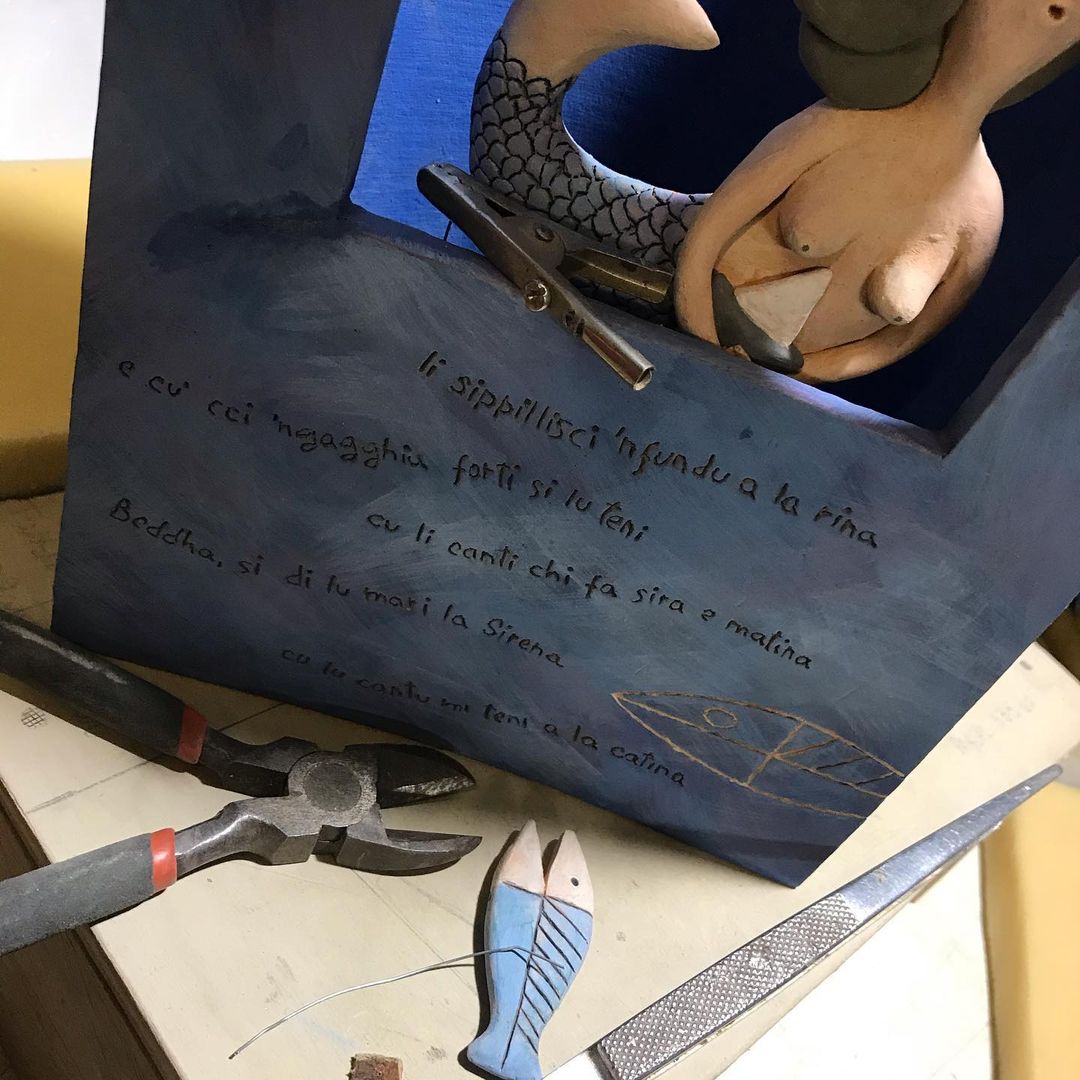 li sippillisci 'nfundu a la rina
e cu' cci 'ngagghia forti si lu teni
cu li canti chi fa sira e matina
Beddha, si di lu mari la Sirena
cu lu cantu mi teni a la catina